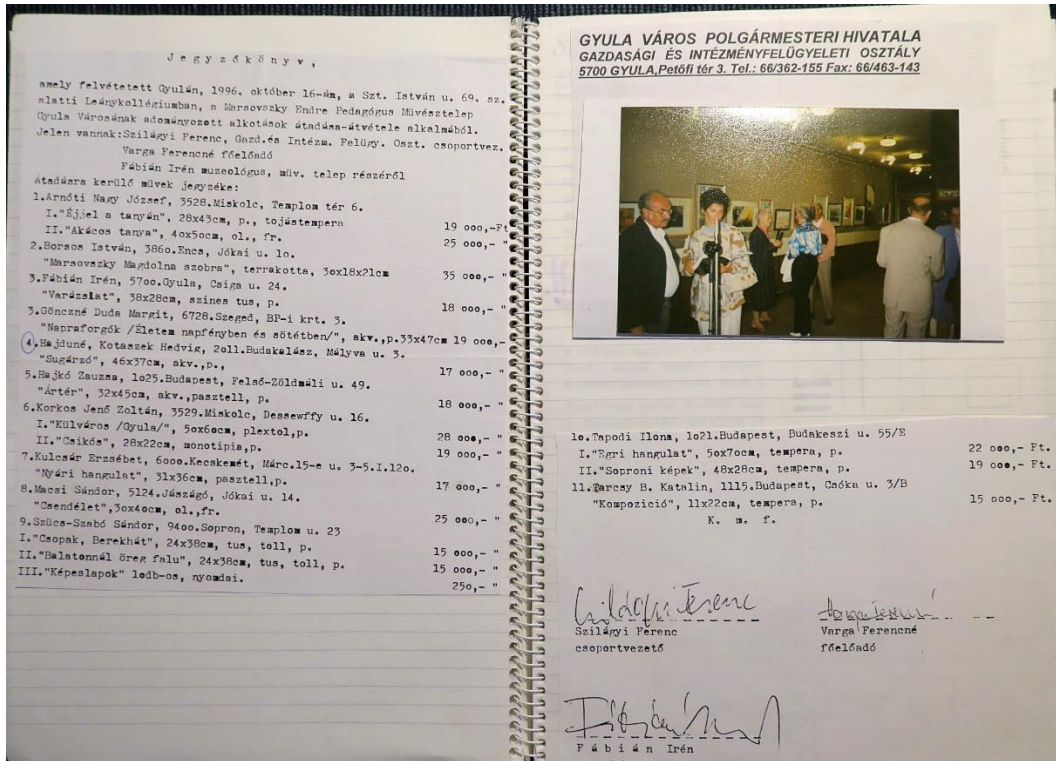 Jegyzőkönyv,
amely felvétetett Gyulán, 1996. október 16-án, a Szt. István u. 69. sz.
alatti Leánykollégiumban, a Marsovszky Endre Pedagógus Művésztelep
Gyula Városának adományozott alkotások átadása-átvétele alkalmából.
Jelen vannak:Szilágyi Ferenc, Gazd.és Intézm. Felügy. Oszt. csoportvez.
Varga Ferencné főelőadó
Fábián Irén muzeológus, müv. telep részéről
Átadásra kerülő müvek jegyzéke:
1.Arnóti Nagy József, 3528.Miskolc, Templom tér 6.
I."Éjjel a tanyán", 28x43cm, p., tojástempera 19 ooo,-Ft
II."Akácos tanya", 4ox5ocm, ol., fr. 25 ooo,- "
2.Borsos István, 386o.Encs, Jókai u. 1o.
"Marsovszky Magdolna szobra", terrakotta, 3ox18x21cm 35 ooo,- "
3.Fábián Irén, 57oo.Gyula, Csiga u. 24.
"Varázslat", 38x28cm, szines tus, p. 18 ooo,- "
3.Gönczné Duda Margit, 6728.Szeged, BP-i krt. 3.
"Napraforgók /Életem napfényben és sötétben/", akv.,p.33x47cm 19 ooo,-
4.Hajduné, Kotaszek Hedvig, 2o11.Budakalász, Mályva u. 3.
"Sugárzó", 46x37cm, akv.,p., 17 ooo,- "
5.Hajkó Zauzsa, 1o25.Budapest, Felső-Zöldmáli u. 49.
"Ártér", 32x45cm, akv.,pasztell, p. 18 ooo,- "
6.Korkos Jenő Zoltán, 3529.Miskolc, Dessewffy u. 16.
I."Külváros /Gyula/", 5ox6ocm, plextol,p. 28 ooo,- "
II."Csikós", 28x22cm, monotipia,p. 19 ooo,- "
7.Kulcsár Erzsébet, 6ooo.Kecskemét, Márc.15-e u. 3-5.I.12o.
"Nyári hangulat", 31x36cm, pasztell,p. 17 ooo,- "
8.Macsi Sándor, 5124.Jászágó, Jókai u. 14.
"Csendélet",3ox4ocm, ol.,fr. 25 ooo,- "
9.Szücs-Szabó Sándor, 94oo.Sopron, Templom u. 23
I."Csopak, Berekhát", 24x38cm, tus, toll, p. 15 ooo,- "
II."Balatonnál öreg falu", 24x38cm, tus, toll, p. 15 ooo,- "
III."Képeslapok" 1odb-os, nyomdai. 25o,- "
GYULA VÁROS POLGÁRMESTERI HIVATALA
GAZDASÁGI ÉS INTÉZMÉNYFELÜGYELETI OSZTÁLY
5700 GYULA,Petőfi tér 3. Tel.: 66/362-155 Fax: 66/463-143
1o.Tapodi Ilona, 1o21.Budapest, Budakeszi u. 55/E
I."Egri hangulat", 5ox7ocm, tempera, p. 22 ooo,- Ft.
II."Soproni képek", 48x28cm, tempera, p. 19 ooo,- Ft.
11.Tarcsy B. Katalin, 1115.Budapest, Csóka u. 3/B
"Kompozició", 11x22cm, tempera, p. 15 ooo,- Ft.
K. m. f.
Szilágyi Ferenc
Szilágyi Ferenc Varga Ferencné
csoportvezető főelőadó
Fábián Irén